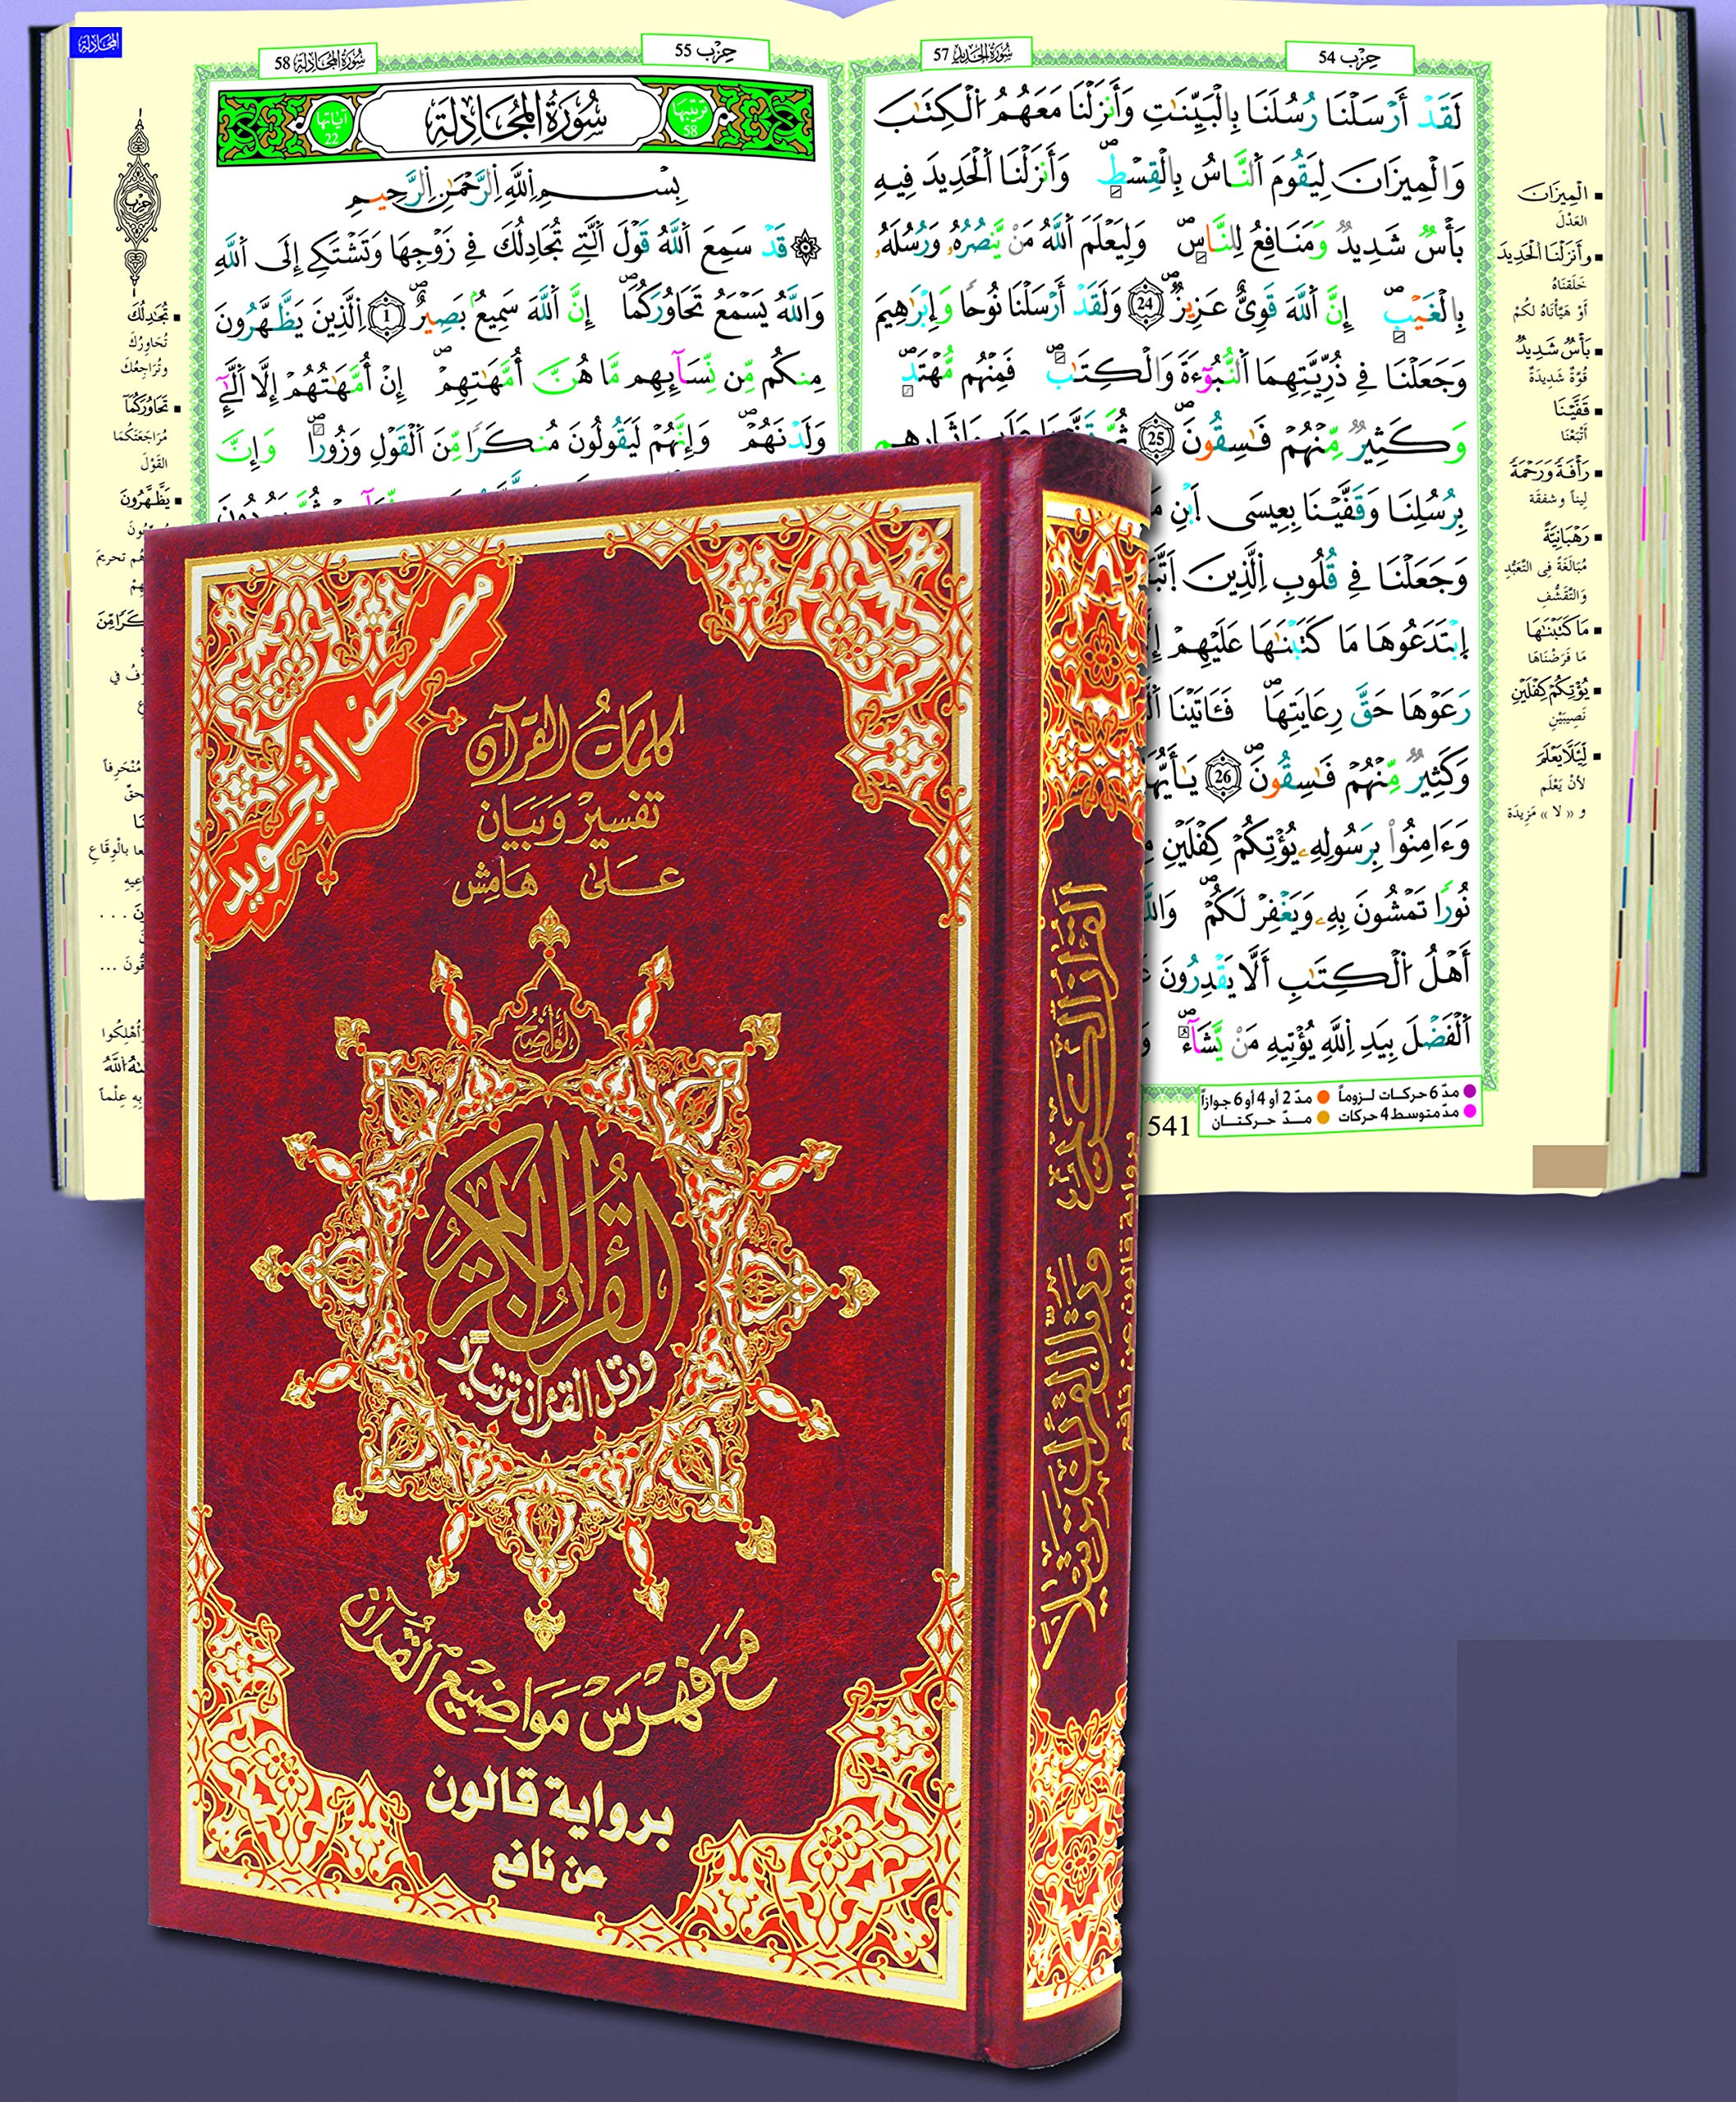 حزب 54
سُورَةُ الحَدِيد 57
لَقَدْ أَرْسَلْنَا رُسُلَنَا بِالْبَيِّنَٰتِ وَأَنزَلْنَا مَعَهُمُ الْكِتَٰبَ
وَالْمِيزَانَ لِيَقُومَ النَّاسُ بِالْقِسْطِ وَأَنزَلْنَا الْحَدِيدَ فِيهِ
بَأْسٌ شَدِيدٌ وَمَنَافِعُ لِلنَّاسِ وَلِيَعْلَمَ اللَّهُ مَنْ يَّنصُرُهُ وَرُسُلَهُ
بِالْغَيْبِ إِنَّ اللَّهَ قَوِيٌّ عَزِيزٌ 24 وَلَقَدْ أَرْسَلْنَا نُوحاً وَإِبْرَٰهِيمَ
وَجَعَلْنَا فِي ذُرِّيَّتِهِمَا النُّبُوٓءَةَ وَالْكِتَٰبَ فَمِنْهُم مُّهْتَدٍ
وَكَثِيرٌ مِّنْهُمْ فَٰسِقُونَ 25 ثُمَّ قَفَّيْنَا عَلَىٰ ءَاثَٰرِهِم
بِرُسُلِنَا وَقَفَّيْنَا بِعِيسَى ابْنِ
وَجَعَلْنَا فِي قُلُوبِ الَّذِينَ
ابْتَدَعُوهَا مَا كَتَبْنَٰهَا عَلَيْهِمْ
رَعَوْهَا حَقَّ رِعَايَتِهَا فَـَٔاتَيْنَا
وَكَثِيرٌ مِّنْهُمْ فَٰسِقُونَ 26 يَٰأَيُّهَا
وَءَامِنُوا بِرَسُولِهِ يُؤْتِكُمْ كِفْلَيْنِ
نُوراً تَمْشُونَ بِهِ وَيَغْفِرْ لَكُمْ
أَهْلُ الْكِتَٰبِ أَلَّا يَقْدِرُونَ
الْفَضْلَ بِيَدِ اللَّهِ يُؤْتِيهِ مَنْ يَّشَآءُ
الْمِيزَانَ
العَدْلَ
وأَنزَلْنَا الْحَدِيدَ
خَلَقْنَاهُ
أَوْ هَيَّأْنَاهُ لَكُمْ
بَأْسٌ شَدِيدٌ
قُوَّةٌ شَدِيدَةٌ
قَفَّيْنَا
أَتْبَعْنَا
رَأْفَةً وَرَحْمَةً
لِيناً وشفقة
رَهْبَانِيَّةً
مُبَالَغَةً فِى التَّعَبُّدِ
وَالتَّقَشُّفِ
مَا كَتَبْنَٰهَا
مَا فَرَضْنَاهَا
يُؤْتِكُمْ كِفْلَيْنِ
نَصِيبَيْنِ
لِّيَلَّا يَعْلَمَ
لأَنْ يَعْلَم
و «لا» مَزِيدَة
مدّ 6 حركات لـزوماً مدّ 2 أو 4 أو 6 جوازاً
مدّ متوسط 4 حركات مـدّ حـركتـان
541
حزب 55
سُورَةُ المُجَادِلَة 58
المُجَادِلَة
ترتيبها 58
سُورَةُ المُجَادِلَة
آياتها 22
بِسْمِ اللَّهِ الرَّحْمَٰنِ الرَّحِيمِ
قَدْ سَمِعَ اللَّهُ قَوْلَ الَّتِي تُجَادِلُكَ فِي زَوْجِهَا وَتَشْتَكِي إِلَى اللَّهِ
وَاللَّهُ يَسْمَعُ تَحَاوُرَكُمَا إِنَّ اللَّهَ سَمِيعٌ بَصِيرٌ 1 الَّذِينَ يَظَّهَّرُونَ
مِنكُم مِّن نِّسَآئِهِم مَّا هُنَّ أُمَّهَٰتِهِمْ إِنْ أُمَّهَٰتُهُمْ إِلَّا الَّٰٓئِي
وَلَدْنَهُمْ وَإِنَّهُمْ لَيَقُولُونَ مُنكَراً مِّنَ الْقَوْلِ وَزُوراً وَإِنَّ
حزب
تُجَٰدِلُكَ
تُحَاوِرُكَ
وتُرَاجِعُكَ
تَحَاوُرَكُمَآ
مُرَاجَعَتَكُمَا
القَوْلَ
يَظَّهَّرُونَ
مصحف التجويد
كلمات القرآن
تفسير وبيان
على هامش
الواضح
القرآن الكريم
ورتل القرءان ترتيلا
مَعَ فِهْرِس مَوَاضِيعِ القُرآنِ
برواية قالون
عن نافع
القرآن الكريم ورتل القرآن ترتيلا
برواية قالون عن نافع